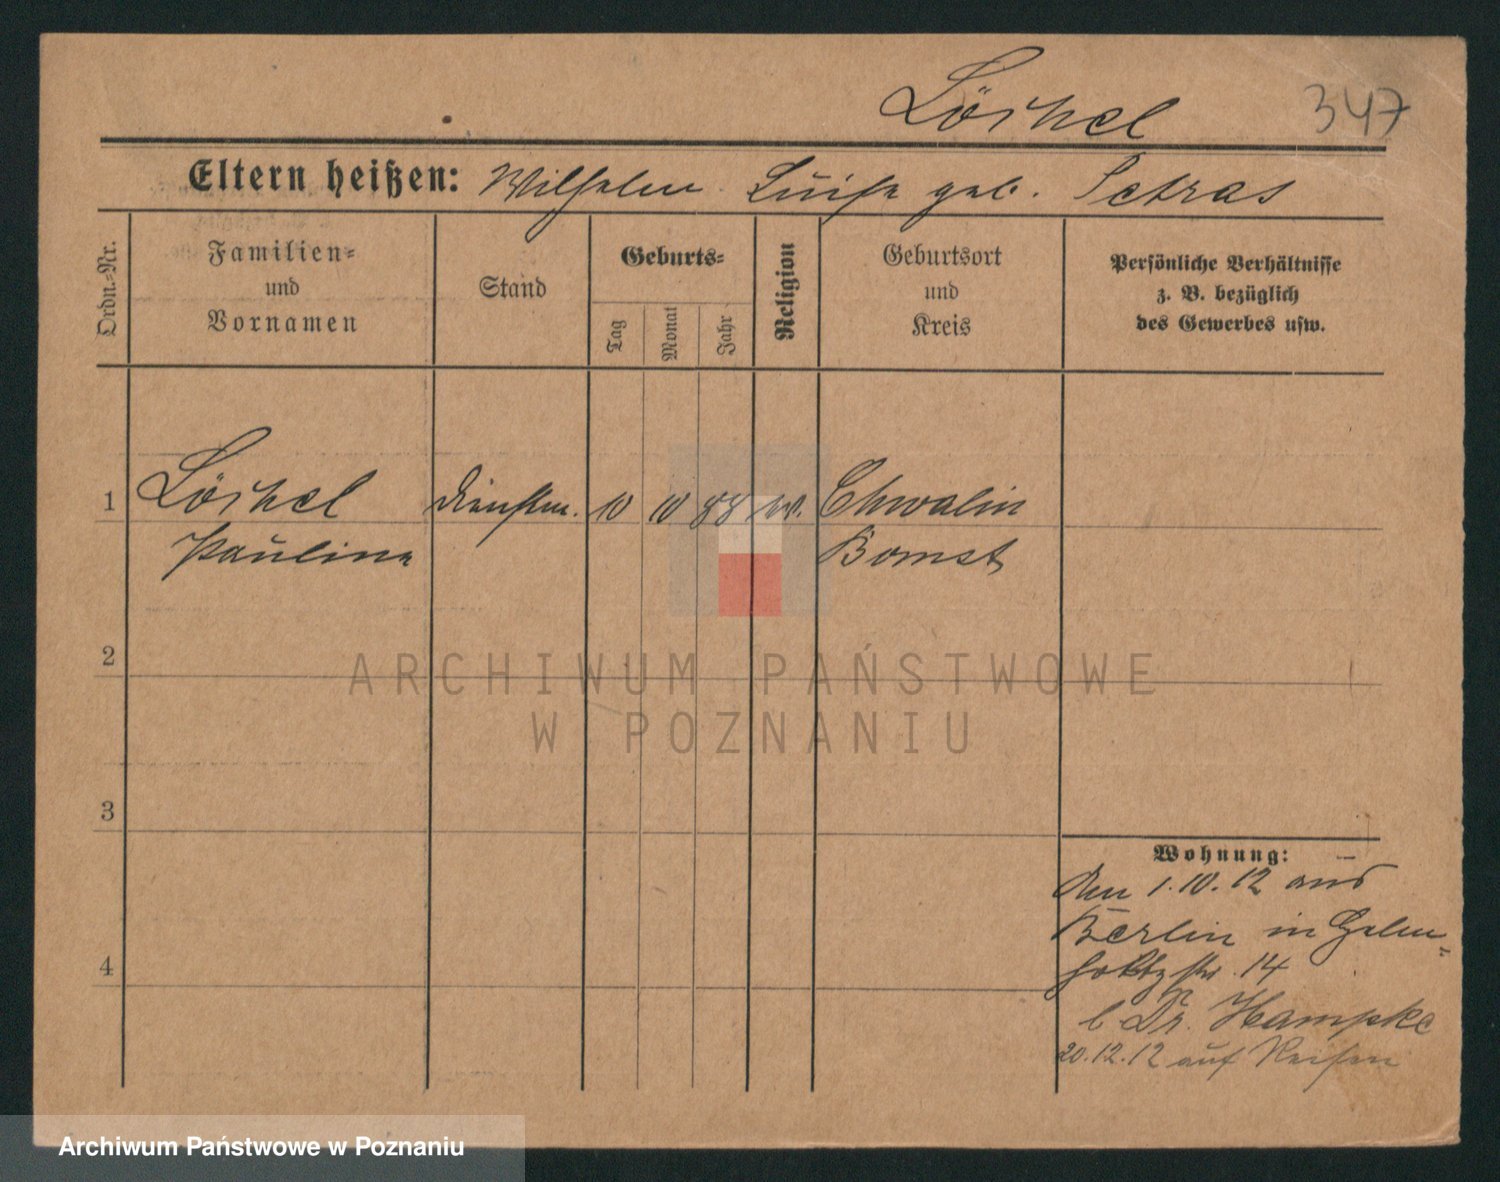 Löschel 347
Eltern heißen: Wilhelm Luise geb. Petras
Ordn.-Nr.
Familien-
und
Vornamen
Stand
Geburts-
Tag
Monat
Jahr
Religion
Geburtsort
und
Kreis
Persönliche Verhältnisse
z. B. bezüglich
des Gewerbes usw.
1 Löschel Dienstm. 10 10 88 ev. Chwalin
Pauline Bomst
2
ARCHIWUM PAŃSTWOWE
W POZNANIU
3
Wohnung:
den 1.10.12 aus
Berlin in
str. 14
4
b Dr. Hampke
20.12.12 auf Reisen
Archiwum Państwowe w Poznaniu